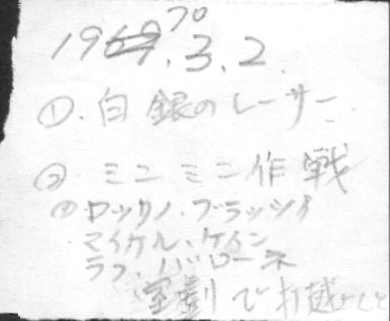 70
1969.3.2.
①.白銀のレーサー
② ミニミニ作戦
ロッサノ.ブラッツィ
マイケル.ケイン
ラフ.バローネ
で打越